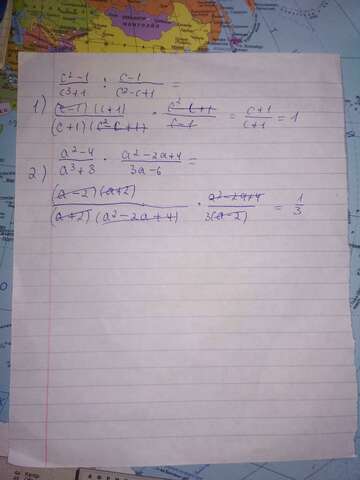 МОНГОЛИЯ
1) (c²-1)/(c³+1) : (c-1)/(c²-c+1) =
((c-1)(c+1))/((c+1)(c²-c+1)) · (c²-c+1)/(c-1) = (c+1)/(c+1) = 1
2.) (a²-4)/(a³+8) · (a²-2a+4)/(3a-6) =
((a-2)(a+2))/((a+2)(a²-2a+4)) · (a²-2a+4)/(3(a-2)) = 1/3